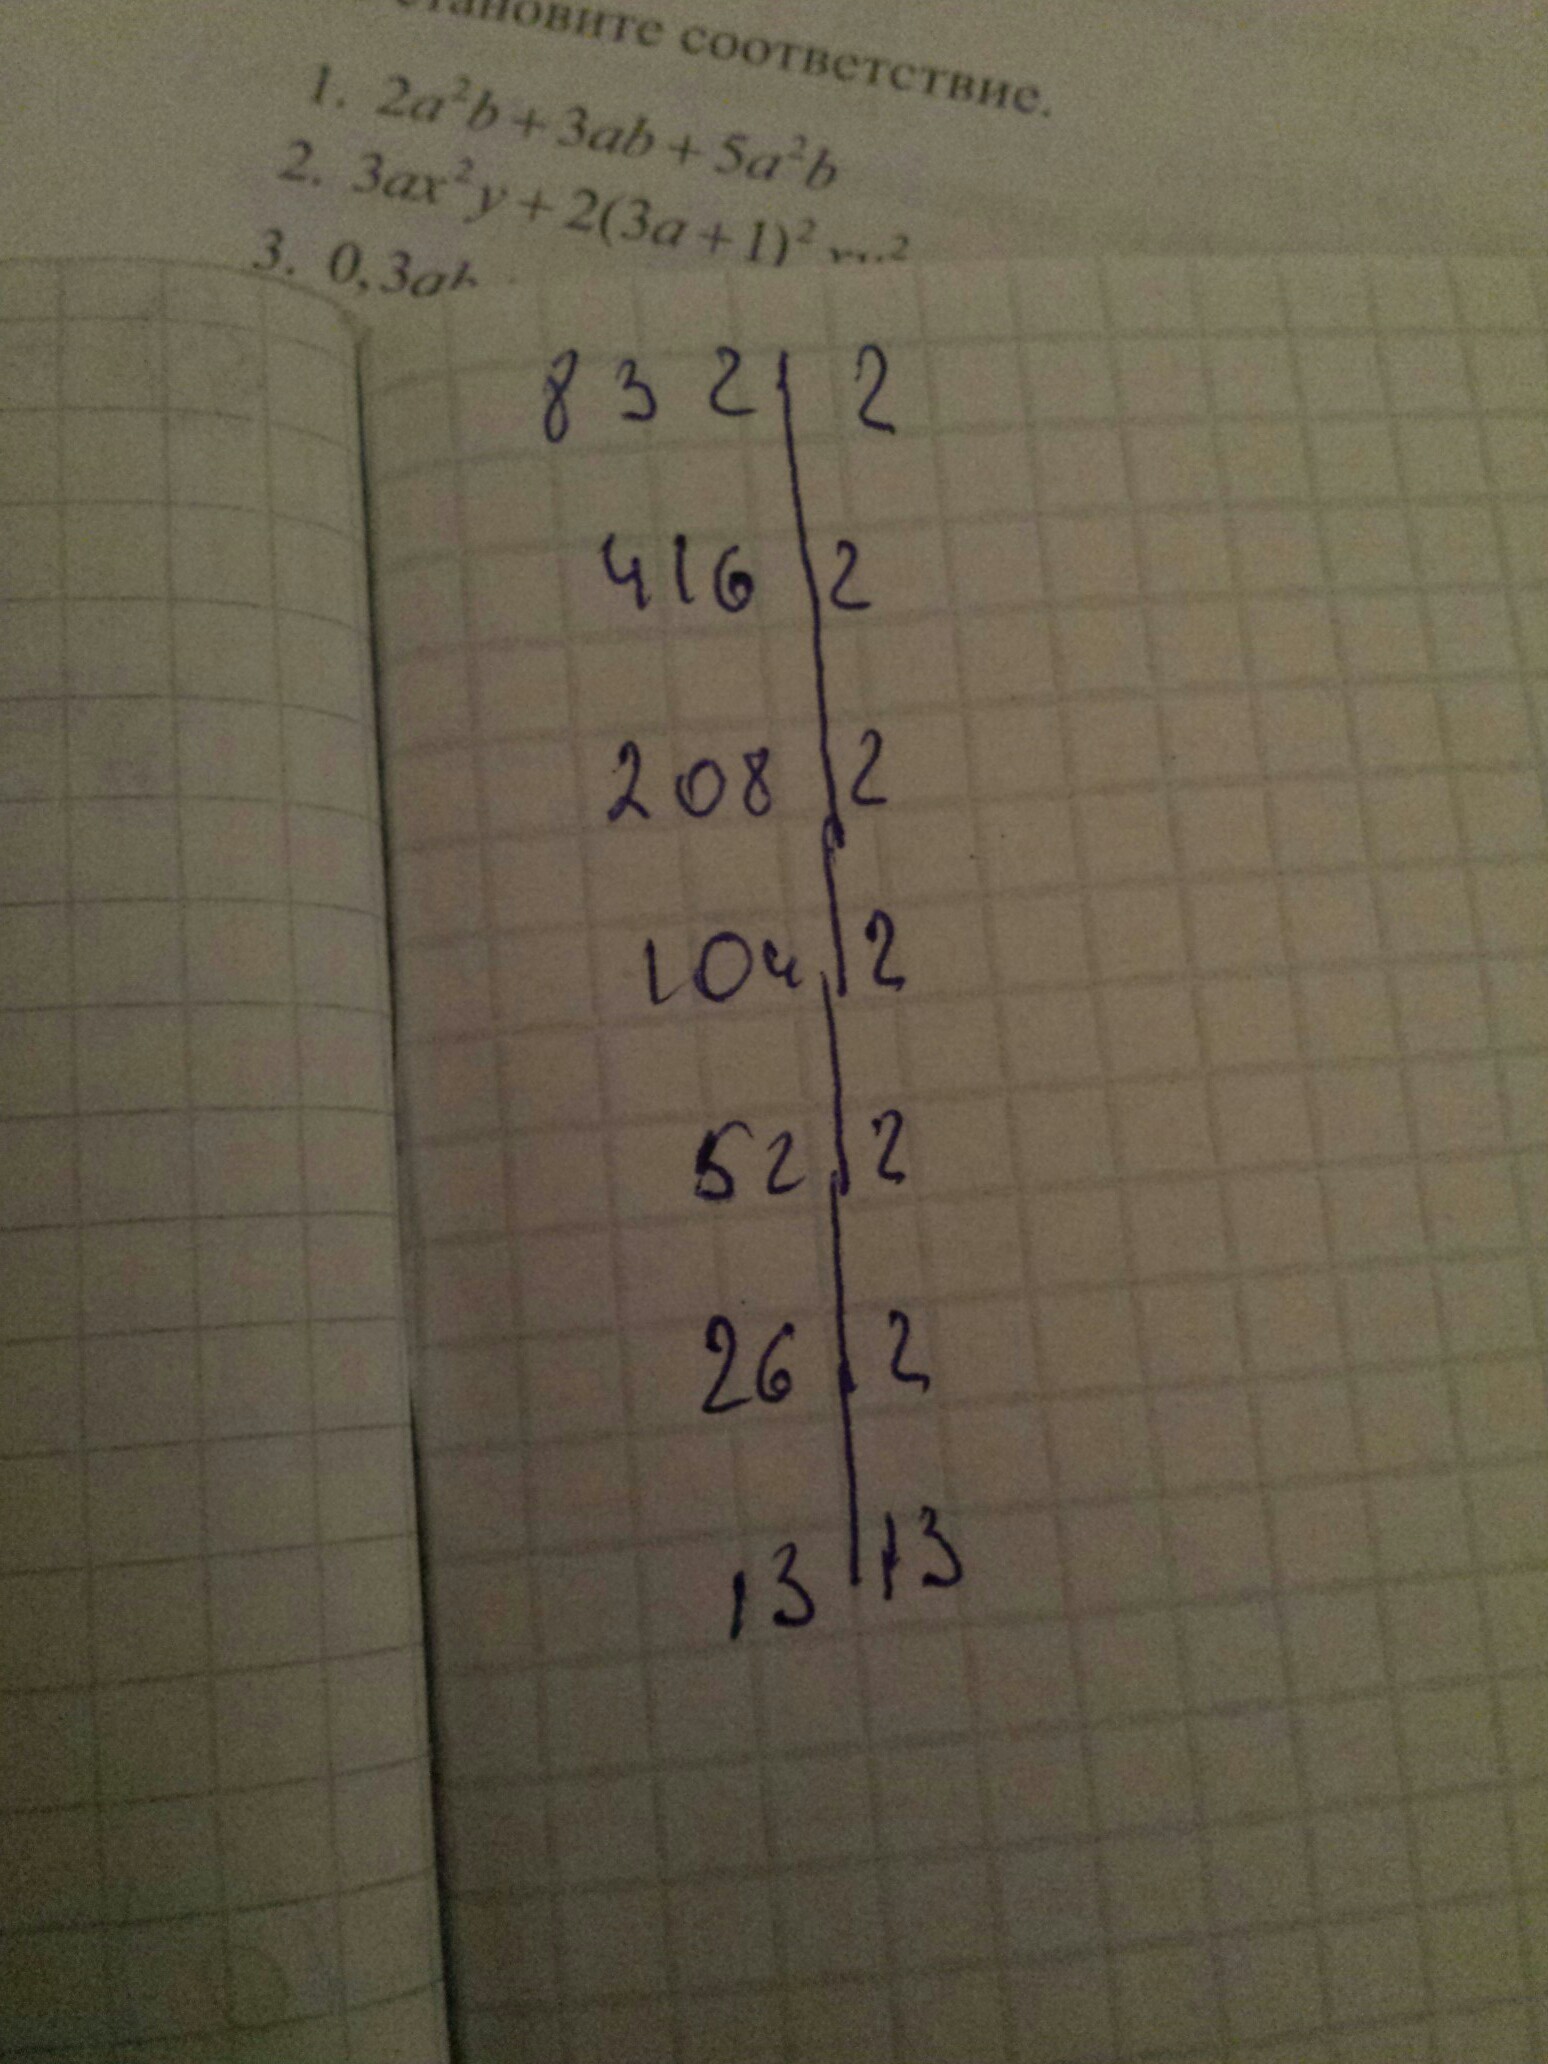 соответствие.
1. 2a²b + 3ab + 5a²b
2. 3ax²y + 2(3a + 1)²
3. 0,3ab
832 | 2
416 | 2
208 | 2
104 | 2
52 | 2
26 | 2
13 | 13